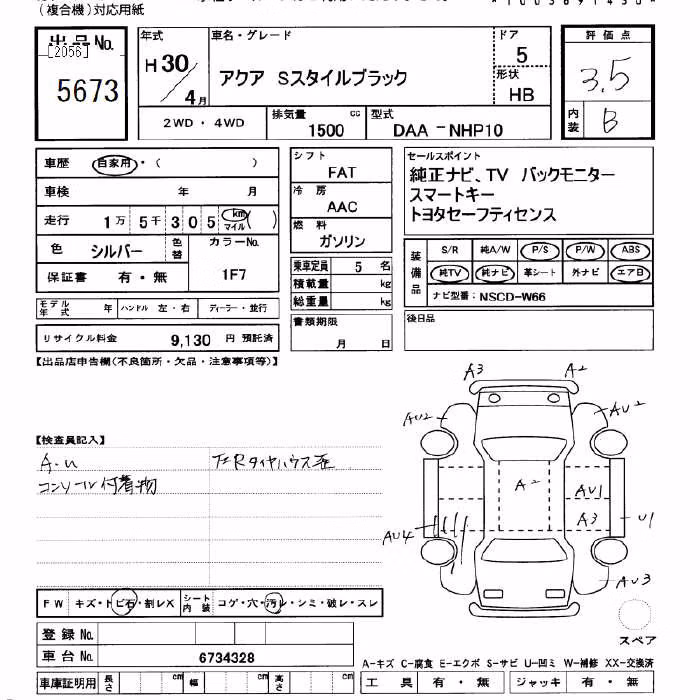 (複合機)対応用紙
出品No.
[2056]
5673
年式
H30/4月
車名・グレード
アクア Sスタイルブラック
ドア
5
形状
HB
評価点
3.5
内装
B
2WD・4WD
排気量
1500 cc
型式
DAA-NHP10
車歴 自家用・( )
車検 年 月
走行 1万 5千 305 km マイル ( )
色 シルバー 色替
カラーNo.
1F7
保証書 有・無
シフト
FAT
冷房
AAC
燃料
ガソリン
乗車定員 5 名
積載量 kg
総重量 kg
セールスポイント
純正ナビ、TV バックモニター
スマートキー
トヨタセーフティセンス
装備品
S/R 純A/W P/S P/W ABS
純TV 純ナビ 革シート 外ナビ エアB
ナビ型番:NSCD-W66
モデル年式 年 ハンドル 左・右 ディーラー・並行
リサイクル料金 9,130 円 預託済
書類期限
月 日
後日品
【出品店申告欄(不良箇所・欠品・注意事項等)】
A3 A2
AU2 AU2
【検査員記入】
A.U
コンソール付着物
A2
AU1
A3 U1
AU4
AU3
スペア
FW キズ・トビ石・割レX
シート内装 コゲ・穴・汚レ・シミ・破レ・スレ
登録No.
車台No. 6734328
車庫証明用 長さ cm 幅 cm 高さ cm
A-キズ C-腐食 E-エクボ S-サビ U-凹ミ W-補修 XX-交換済
工具 有・無 ジャッキ 有・無